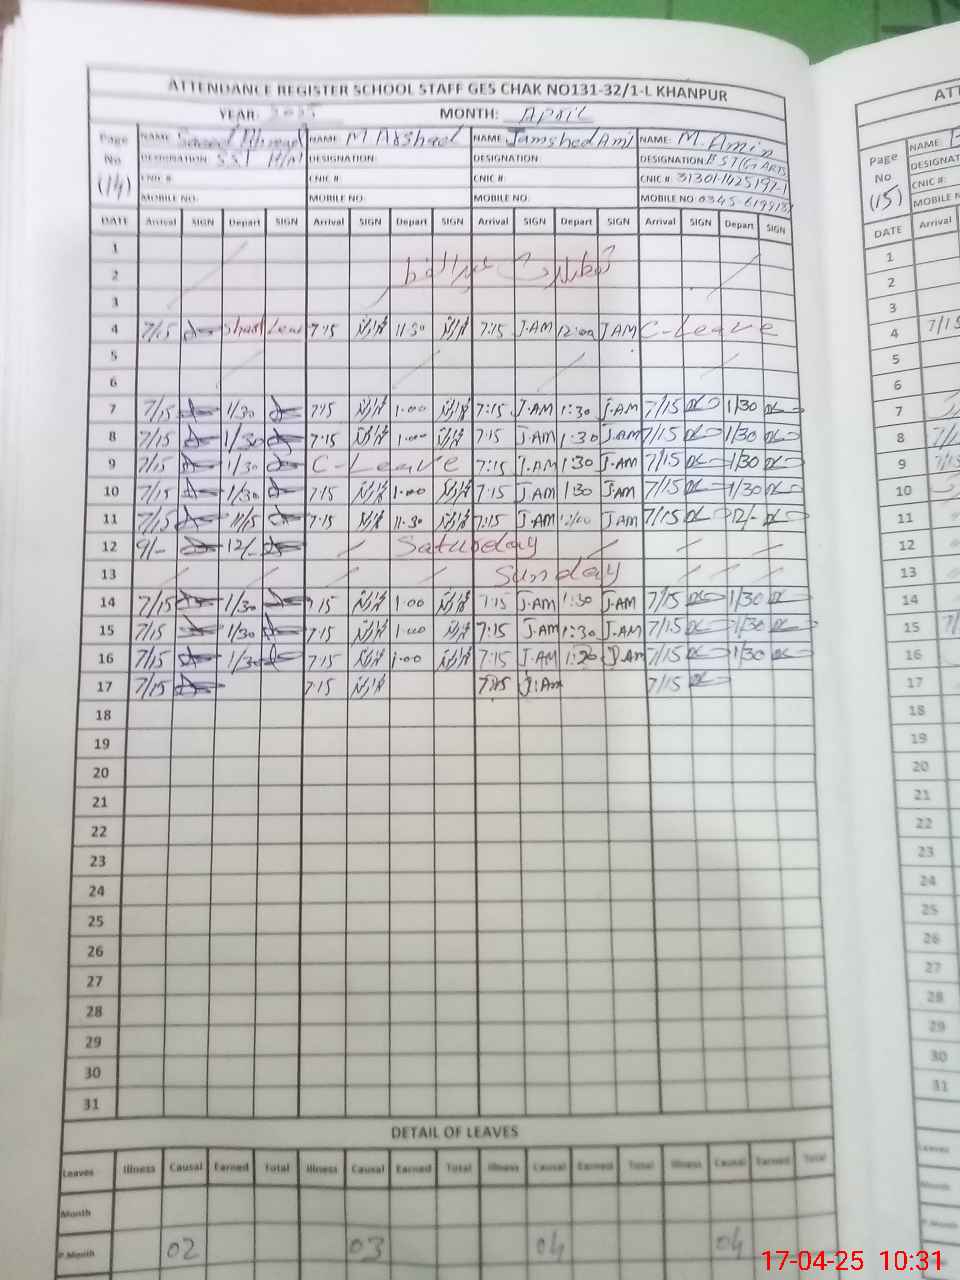 ATTENDANCE REGISTER SCHOOL STAFF GES CHAK NO131-32/1-L KHANPUR
YEAR: 2025 MONTH: April
Page No (14)
NAME: Saeed Ahmad NAME: M Arshad NAME: Jamshed Ami NAME: M. Amin
DESIGNATION: SST DESIGNATION: DESIGNATION: DESIGNATION: EST(G ARTS
CNIC #: CNIC #: CNIC #: CNIC #: 31301-1425197-1
MOBILE NO: MOBILE NO: MOBILE NO: MOBILE NO: 0345-619913
DATE Arrival SIGN Depart SIGN Arrival SIGN Depart SIGN Arrival SIGN Depart SIGN Arrival SIGN Depart SIGN
1
2 تعطیلات عیدالفطر
3
4 7/15 Short Leave 7:15 11:30 7:15 J.AM 12:00 J AM C-Leave
5
6
7 7/15 1/30 7:15 1:00 7:15 J.AM 1:30 J.AM 7/15 1/30
8 7/15 1/30 7:15 1:00 7:15 J.AM 1:30 J.AM 7/15 1/30
9 7/15 1/30 C-Leave 7:15 J.AM 1:30 J.AM 7/15 1/30
10 7/15 1/30 7:15 1:00 7:15 J.AM 1:30 J.AM 7/15 1/30
11 7/15 11/15 7:15 11:30 7:15 J.AM 12/00 J AM 7/15 12/-
12 9/- 12/- Saturday
13 Sunday
14 7/15 1/30 7:15 1:00 7:15 J.AM 1:30 J.AM 7/15 1/30
15 7/15 1/30 7:15 1:00 7:15 J.AM 1:30 J.AM 7/15 1/30
16 7/15 1/30 7:15 1:00 7:15 J.AM 1:30 J.AM 7/15 1/30
17 7/15 7:15 7:15 J.AM 7/15
18
19
20
21
22
23
24
25
26
27
28
29
30
31
DETAIL OF LEAVES
Leaves Illness Causal Earned Total Illness Causal Earned Total Illness Causal Earned Total Illness Causal Earned Total
Month
P.Month 02 03 04 04
ATT
Page No (15)
NAME:
DESIGNATION
CNIC #:
MOBILE N
DATE Arrival
1
2
3
4 7/15
5
6
7
8 7/15
9 7/15
10
11
12
13
14
15
16
17
18
19
20
21
22
23
24
25
26
27
28
29
30
31
Leaves
Month
P.Month
17-04-25 10:31